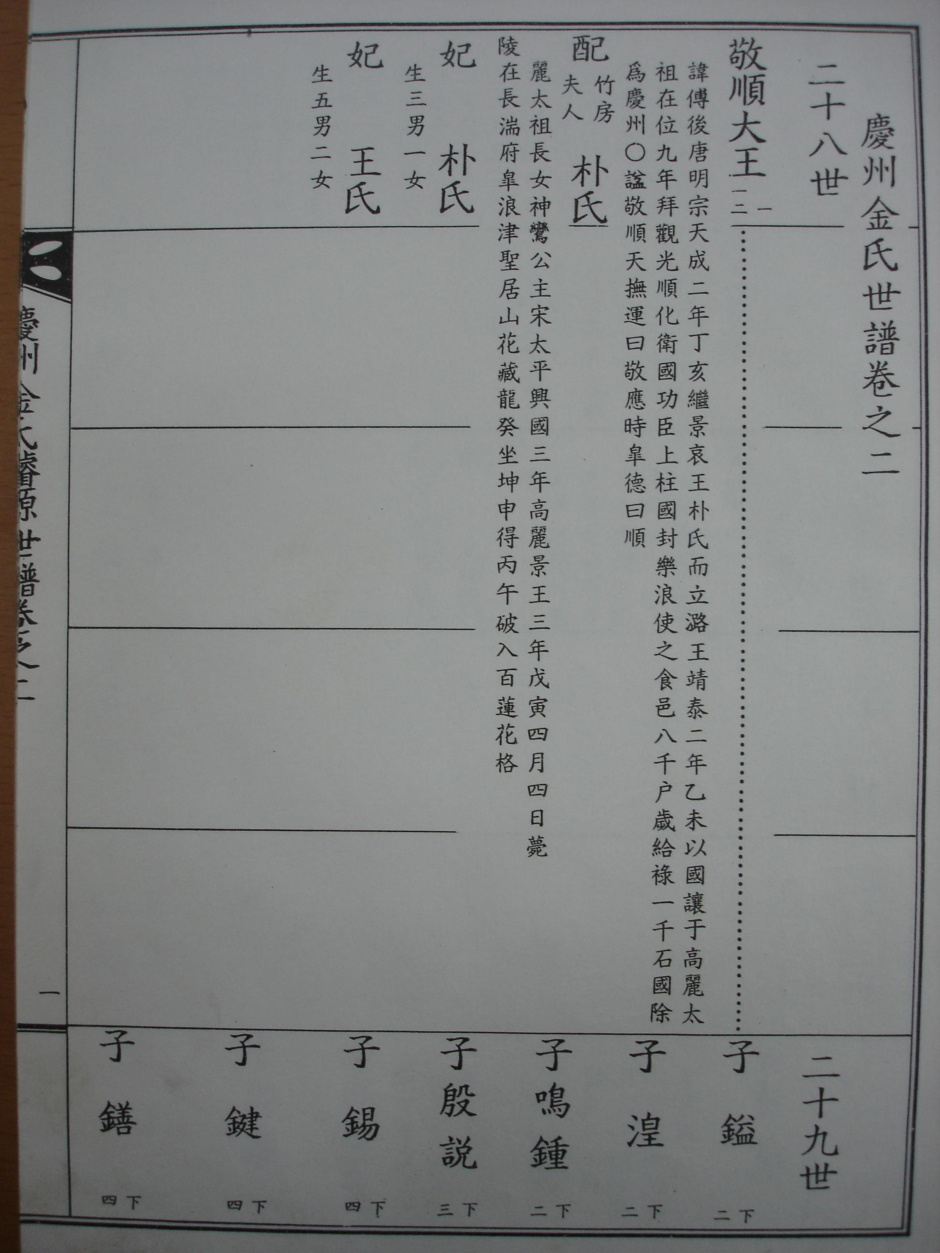 慶州金氏世譜卷之二
二十八世
敬順大王
一
二三
諱傅後唐明宗天成二年丁亥繼景哀王朴氏而立潞王靖泰二年乙未以國讓于高麗太
祖在位九年拜觀光順化衛國功臣上柱國封樂浪使之食邑八千户歲給祿一千石國除
爲慶州〇諡敬順天撫運曰敬應時臯德曰順
配
竹房
夫人
朴氏
麗太祖長女神鸞公主宋太平興國三年高麗景王三年戊寅四月四日薨
陵在長湍府臯浪津聖居山花藏龍癸坐坤申得丙午破入百蓮花格
妃 朴氏
生三男一女
妃 王氏
生五男二女
二十九世
子 鎰
下二
子 湟
下二
子 鳴鍾
下二
子 殷説
下三
子 錫
下四
子 鍵
下四
子 鐥
下四
慶州金氏璿源世譜卷之二
一